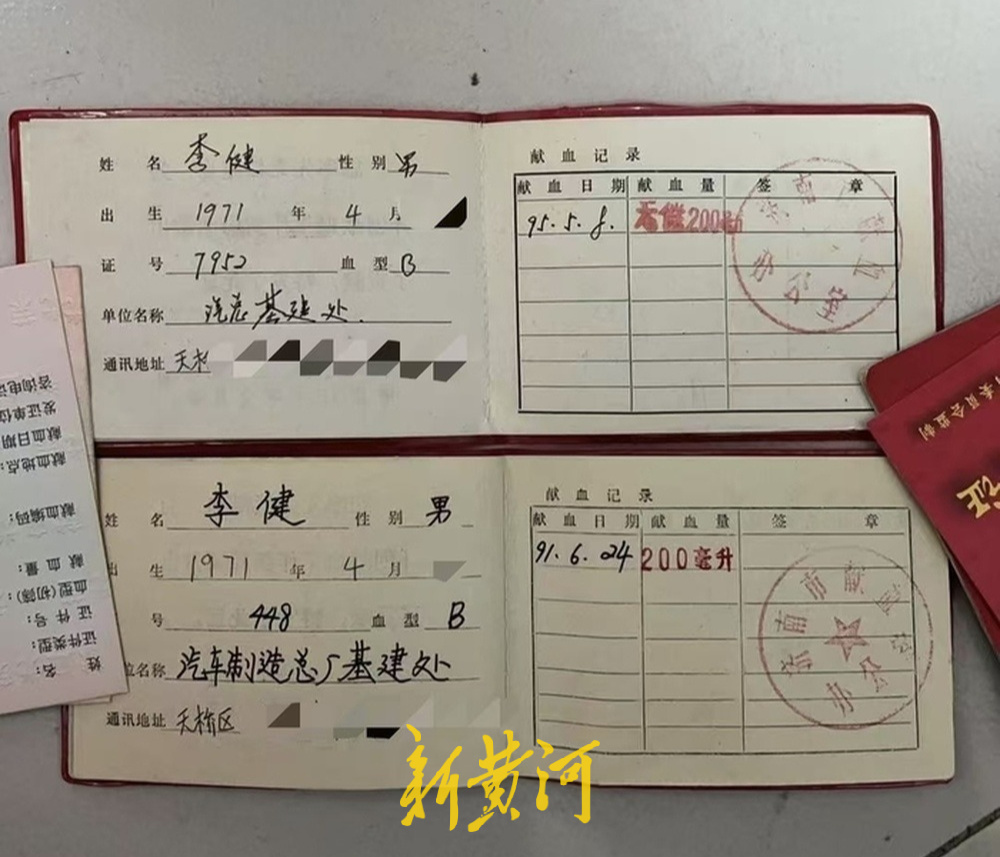 姓 名 李健 性 别 男
出 生 1971 年 4 月
证 号 7952 血 型 B
单位名称 汽总基建处.
通讯地址 天桥
献 血 记 录
献 血 日 期 献 血 量 签 章
95.5.8. 无偿200
济南
血
办公室
姓 名 李 健 性 别 男
出 生 1971 年 4 月
号 448 血 型 B
位名称 汽车制造总厂基建处
通讯地址 天桥区
献 血 记 录
献 血 日 期 献 血 量 签 章
91.6.24 200毫升
济南市献血
办公室
咨询电话
发证单位
献血日期
献血地点：
献血编码：
献 血 量：
血型(初筛)：
证 件 号：
证件类型
姓 名：
委员会监制
证
新黄河